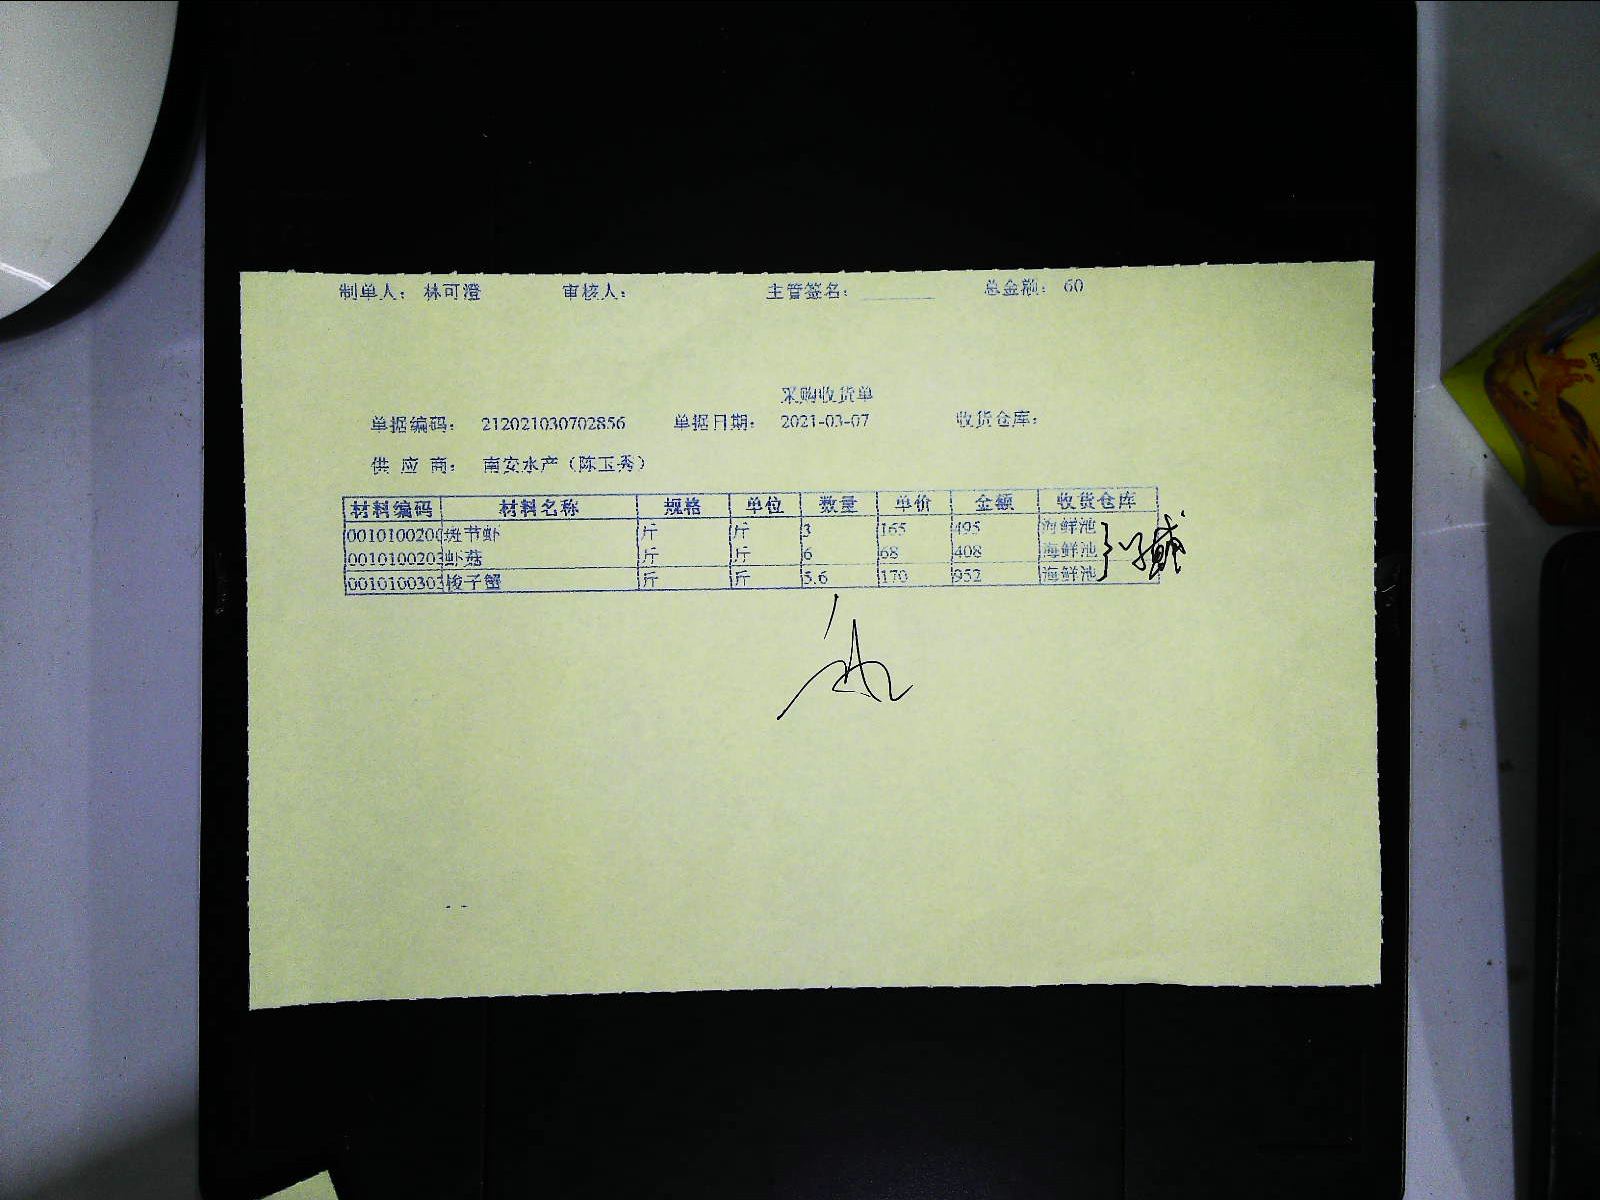 制单人： 林可澄 审核人： 主管签名：________ 总金额： 60
采购收货单
单据编码： 212021030702856 单据日期： 2021-03-07 收货仓库：
供 应 商： 南安水产（陈玉秀）
材料编码 材料名称 规格 单位 数量 单价 金额 收货仓库
0010100200 斑节虾 斤 斤 3 165 495 海鲜池
0010100203 虾菇 斤 斤 6 68 408 海鲜池
0010100303 梭子蟹 斤 斤 5.6 170 952 海鲜池